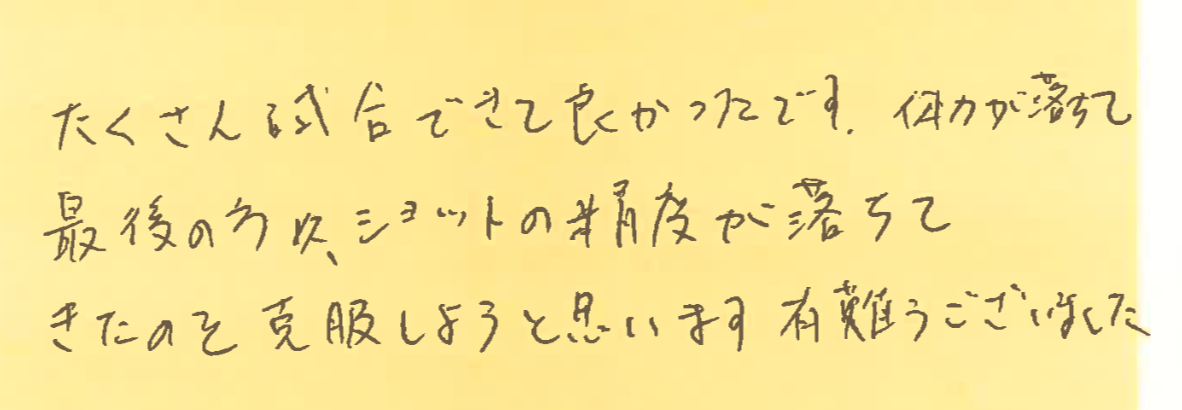 たくさん試合できて良かったです。体力が落ちて
最後の方は、ショットの精度が落ちて
きたのを克服しようと思います有難うございました